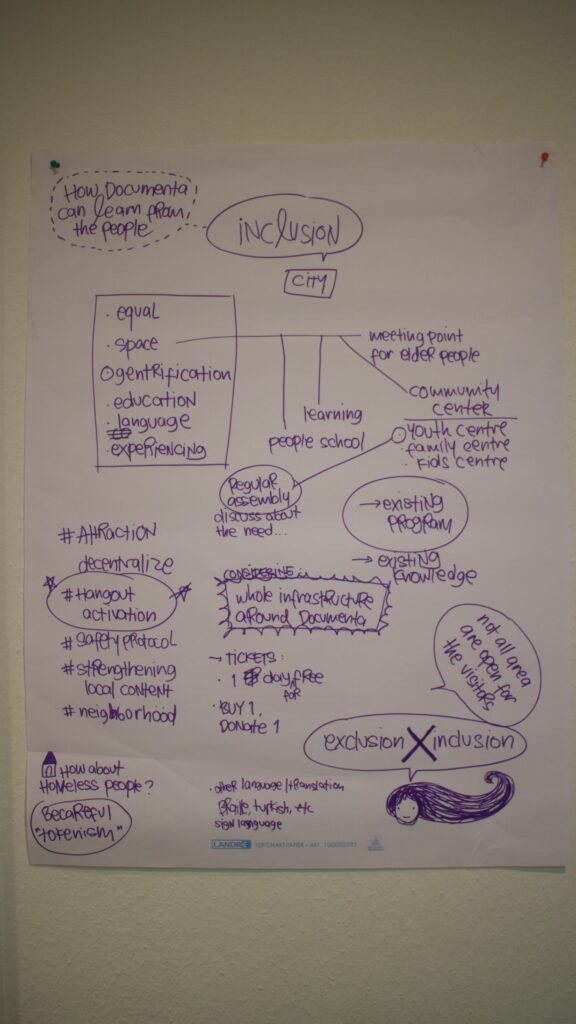 How Documenta
can learn from
the people
inclusion
CITY
· equal
· space
gentrification
· education
· language
· experiencing
meeting point
for elder people
learning
people school
community
center
youth centre
· family centre
· kids centre
Regular
assembly
discuss about
the need...
→ existing
program
→ existing
knowledge
# Attraction
decentralize
# Hangout
activation
# safety protocol
# strengthening
local content
# neighborhood
whole infrastructure
around Documenta
→ TICKETS:
· 1 day free
for
· BUY 1,
DONATE 1
not all area
are open for
the visitors
exclusion X inclusion
How about
Homeless people?
Becareful
"tokenism"
· other language/translation
Braile, turkish, etc
sign language
LANDRÉ TOP-CHART-PAPER · ART. 100050593